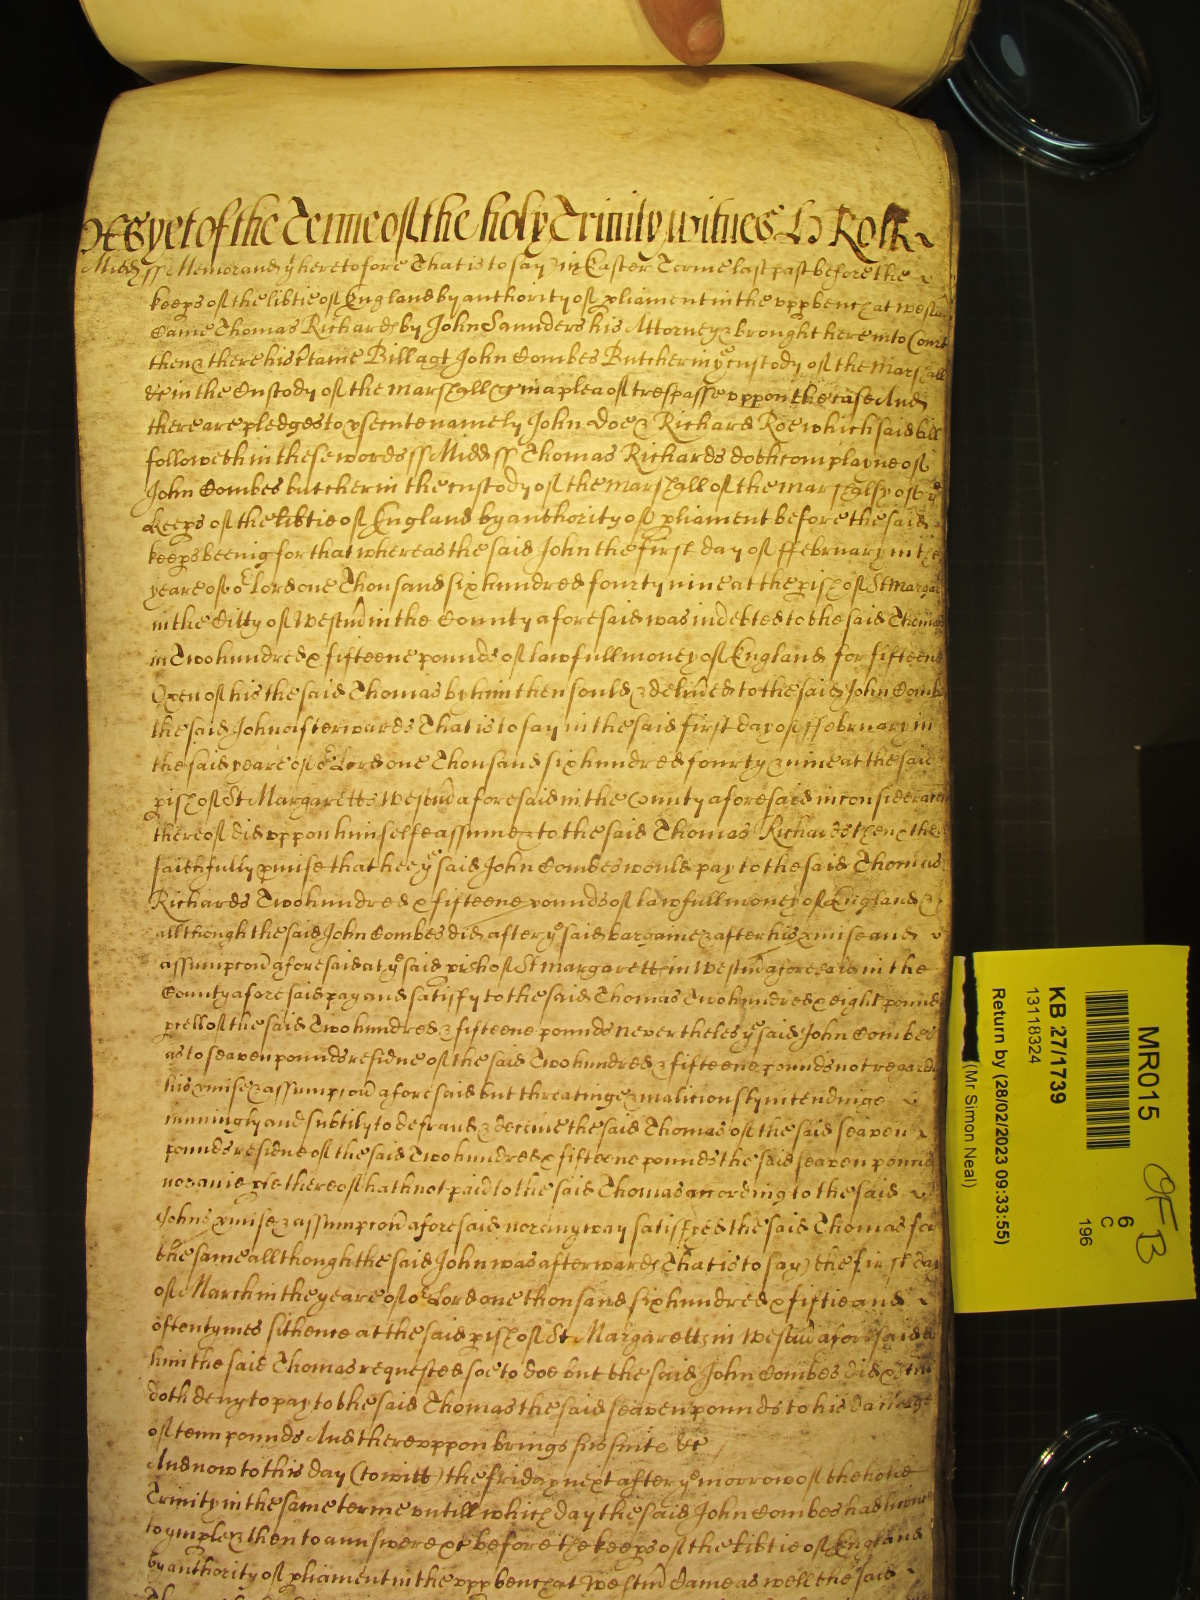 As yet of the Terme of the holy Trinity witnes H Rolle
Midd ss Memorand yt heretofore That is to say in Easter Terme last past before the
keeps of the libtie of England by authority of pliament in the upp bench at Westm
Came Thomas Richards by John Saunders his Attorney & brought here into Court
then & there his certaine Bill agt John Combes Butcher in ye custody of the Marshall
&c in the Custody of the marshall &c in a plea of trespasse uppon the case And
there are pledges to psecute namely John Doe & Richard Roe which said bill
followeth in these words ss Midd ss Thomas Richards doth complayne of
John Combes butcher in the custody of the marshall of the marshalsy of ye
Keeps of the libtie of England by authority of pliament before the said
keeps beeing for that whereas the said John the first day of ffebruary in the
yeare of or Lord one Thousand six hundred fourty nine at the pish of St Margar
in the Citty of Westm in the County aforesaid was indebted to the said Thomas
in Two hundred & fifteene pounds of lawfull money of England for fifteene
Oxen of his the said Thomas by him then sould & delived to the said John Combes
the said John afterwards That is to say in the said first day of ffebruary in
the said yeare of or Lord one Thousand six hundred fourty & nine at the said
pish of St Margaretts Westm aforesaid in the County aforesaid in consideracon
thereof did uppon himselfe assume & to the said Thomas Richards then & there
faithfully pmise that hee ye said John Combes would pay to the said Thomas
Richards Two hundred & fifteene pounds of lawfull money of England &
allthough the said John Combes did after ye said bargaine & after his pmise and
assumpcon aforesaid at ye said pish of St Margaretts in Westm aforesaid in the
County aforesaid pay and satisfy to the said Thomas Two hundred & eight pounds
pcell of the said Two hundred & fifteene pounds nevertheles ye said John Combes
as to seaven pounds residue of the said Two hundred & fifteene pounds not regard
his pmise & assumpcon aforesaid but threatinge & maliciously intendinge
cunningly and subtily to defraud & deceive the said Thomas of the said seaven
pounds residue of the said Two hundred & fifteene pounds the said seaven pounds
nor anie pte thereof hath not paid to the said Thomas according to the said
Johns pmise & assumpcon aforesaid nor any way satisfied the said Thomas for
the same allthough the said John was afterwards (That is to say) the first day
of March in the yeare of or Lord one thousand six hundred & fiftie and
oftentymes sithence at the said pish of St Margaretts in Westm aforesaid
him the said Thomas requested soe to doe but the said John Combes did &
doth deny to pay to the said Thomas the said seaven pounds to his damage
of tenn pounds And thereuppon brings his suite &c
And now to this day (to witt) the friday next after ye morrow of the holie
Trinity in the same terme untill which day the said John Combes had licence
to ymple & then to aunswere &c before the keeps of the Libtie of England
by authority of pliament in the upp bench at Westm Came as well the said
MR015
KB 27/1739
13118324
Return by (28/02/2023 09:33:55)
(Mr Simon Neal)
6
C
196
OFB